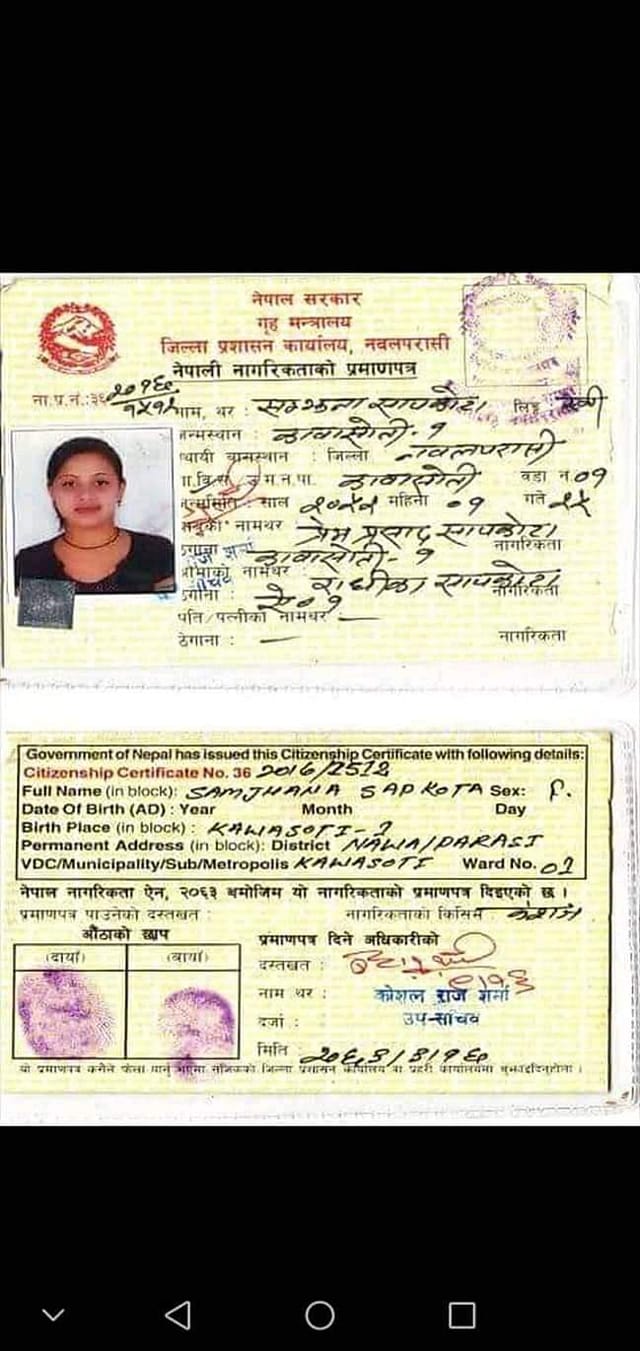 नेपाल सरकार
गृह मन्त्रालय
जिल्ला प्रशासन कार्यालय, नवलपरासी
नेपाली नागरिकताको प्रमाणपत्र
ना.प्र.नं.:३६ २०१६/ नाम, थर : सम्झना सापकोटा लिङ्ग
जन्मस्थान : कावासोती-१
स्थायी वासस्थान : जिल्ला नवलपरासी
गा.वि.स. उ.म.न.पा. कावासोती वडा नं ०१
साल महिना ०१ गते २५
नामथर प्रेम प्रसाद सापकोटा
ठेगाना : कावासोती-१ नागरिकता
आमाको नामथर : राधीका सापकोटा
ठेगाना : नागरिकता
पति/पत्नीको नामथर : —
ठेगाना : — नागरिकता
Government of Nepal has issued this Citizenship Certificate with following details:
Citizenship Certificate No. 36 2016/2512
Full Name (in block): SAMJHANA SAPKOTA Sex: F.
Date Of Birth (AD) : Year Month Day
Birth Place (in block) : KAWASOTI-1
Permanent Address (in block): District NAWALPARASI
VDC/Municipality/Sub/Metropolis KAWASOTI Ward No. 01
नेपाल नागरिकता ऐन, २०६३ बमोजिम यो नागरिकताको प्रमाणपत्र दिइएको छ ।
प्रमाणपत्र पाउनेको दस्तखत : नागरिकताको किसिम वंशज
औंठाको छाप
(दायाँ) (बायाँ)
प्रमाणपत्र दिने अधिकारीको
दस्तखत :
नाम थर : कोशल राज शर्मा
दर्जा : उप-सचिव
मिति :
यो प्रमाणपत्र कसैले फेला पारेमा नजिकको जिल्ला प्रशासन कार्यालय वा प्रहरी कार्यालयमा बुझाइदिनुहोला ।